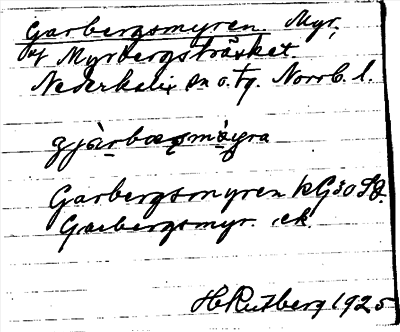 Garbergsmyren. Myr,
vf Myrbergsträsket.
Nederkalix sn o. tg. Norrb. l.
Garbergsmyren kG30 SO.
Garbergsmyr. ek.
H Rutberg 1925